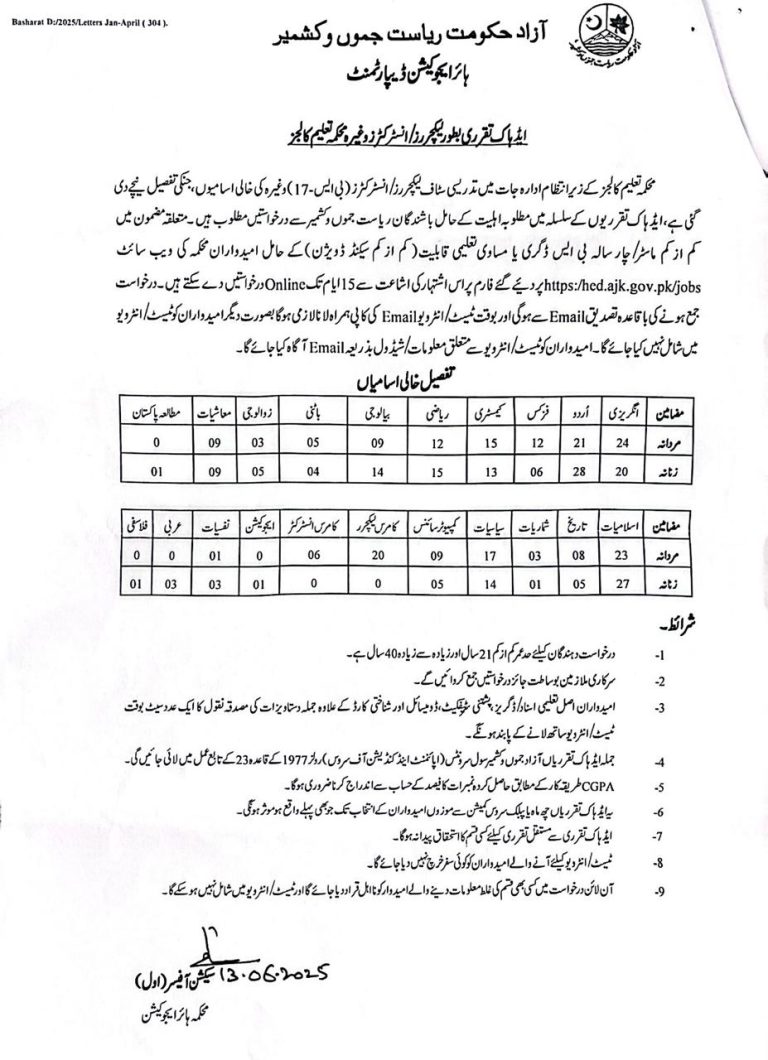 Basharat D:/2025/Letters Jan-April ( 304 ).
آزاد حکومت ریاست جموں و کشمیر
ہائر ایجوکیشن ڈیپارٹمنٹ
ایڈہاک تقرری بطور لیکچررز/انسٹرکٹرز وغیرہ محکمہ تعلیم کالجز
محکمہ تعلیم کالجز کے زیر انتظام ادارہ جات میں تدریسی سٹاف لیکچررز/انسٹرکٹرز (بی ایس-17) وغیرہ کی خالی اسامیوں، جنکی تفصیل نیچے دی
گئی ہے، ایڈہاک تقرریوں کے سلسلہ میں مطلوبہ اہلیت کے حامل باشندگان ریاست جموں وکشمیر سے درخواستیں مطلوب ہیں۔ متعلقہ مضمون میں
کم از کم ماسٹر/چار سالہ بی ایس ڈگری یا مساوی تعلیمی قابلیت (کم از کم سیکنڈ ڈویژن) کے حامل امیدواران محکمہ کی ویب سائٹ
https:/hed.ajk.gov.pk/jobs پر دیئے گئے فارم پر اس اشتہار کی اشاعت سے 15 ایام تک Online درخواستیں دے سکتے ہیں۔ درخواست
جمع ہونے کی باقاعدہ تصدیق Email سے ہوگی اور بوقت ٹیسٹ/انٹرویو Email کی کاپی ہمراہ لانا لازمی ہوگا بصورت دیگر امیدواران کو ٹیسٹ/انٹرویو
میں شامل نہیں کیا جائے گا۔ امیدواران کو ٹیسٹ/انٹرویو سے متعلق معلومات/شیڈول بذریعہ Email آگاہ کیا جائے گا۔
تفصیل خالی اسامیاں
مضامین انگریزی اُردو فزکس کیمسٹری ریاضی بیالوجی باٹنی زوالوجی معاشیات مطالعہ پاکستان
مردانہ 24 21 12 15 12 09 05 03 09 0
زنانہ 20 28 06 13 15 14 04 05 09 01
مضامین اسلامیات تاریخ شماریات سیاسیات کمپیوٹر سائنس کامرس لیکچرر کامرس انسٹرکٹر ایجوکیشن نفسیات عربی فلاسفی
مردانہ 23 08 03 17 09 20 06 0 01 0 0
زنانہ 27 05 01 14 05 0 0 01 03 03 01
شرائط۔
1- درخواست دہندگان کیلئے حد عمر کم از کم 21 سال اور زیادہ سے زیادہ 40 سال ہے۔
2- سرکاری ملازمین بوساطت جائز درخواستیں جمع کروائیں گے۔
3- امیدواران اصل تعلیمی اسناد/ڈگریز، پشتنی سرٹیفکیٹ، ڈومیسائل اور شناختی کارڈ کے علاوہ جملہ دستاویزات کی مصدقہ نقول کا ایک عدد سیٹ بوقت
ٹیسٹ/انٹرویو ساتھ لانے کے پابند ہونگے۔
4- جملہ ایڈہاک تقرریاں آزاد جموں وکشمیر سول سرونٹس (اپائنمنٹ اینڈ کنڈیشن آف سروس) رولز 1977 کے قاعدہ 23 کے تابع عمل میں لائی جائیں گی۔
5- CGPA طریقہ کار کے مطابق حاصل کردہ نمبرات کا فیصد کے حساب سے اندراج کرنا ضروری ہوگا۔
6- یہ ایڈہاک تقرریاں چھ ماہ یا پبلک سروس کمیشن سے موزوں امیدواران کے انتخاب تک جو بھی پہلے واقع ہو موثر ہونگی۔
7- ایڈہاک تقرری سے مستقل تقرری کیلئے کسی قسم کا استحقاق پیدا نہ ہوگا۔
8- ٹیسٹ/انٹرویو کیلئے آنے والے امیدواران کو کوئی سفر خرچ نہیں دیا جائے گا۔
9- آن لائن درخواست میں کسی بھی قسم کی غلط معلومات دینے والے امیدوار کو نااہل قرار دیا جائے گا اور ٹیسٹ/انٹرویو میں شامل نہیں ہو سکے گا۔
13.06.2025
سیکشن آفیسر (اول)
محکمہ ہائر ایجوکیشن